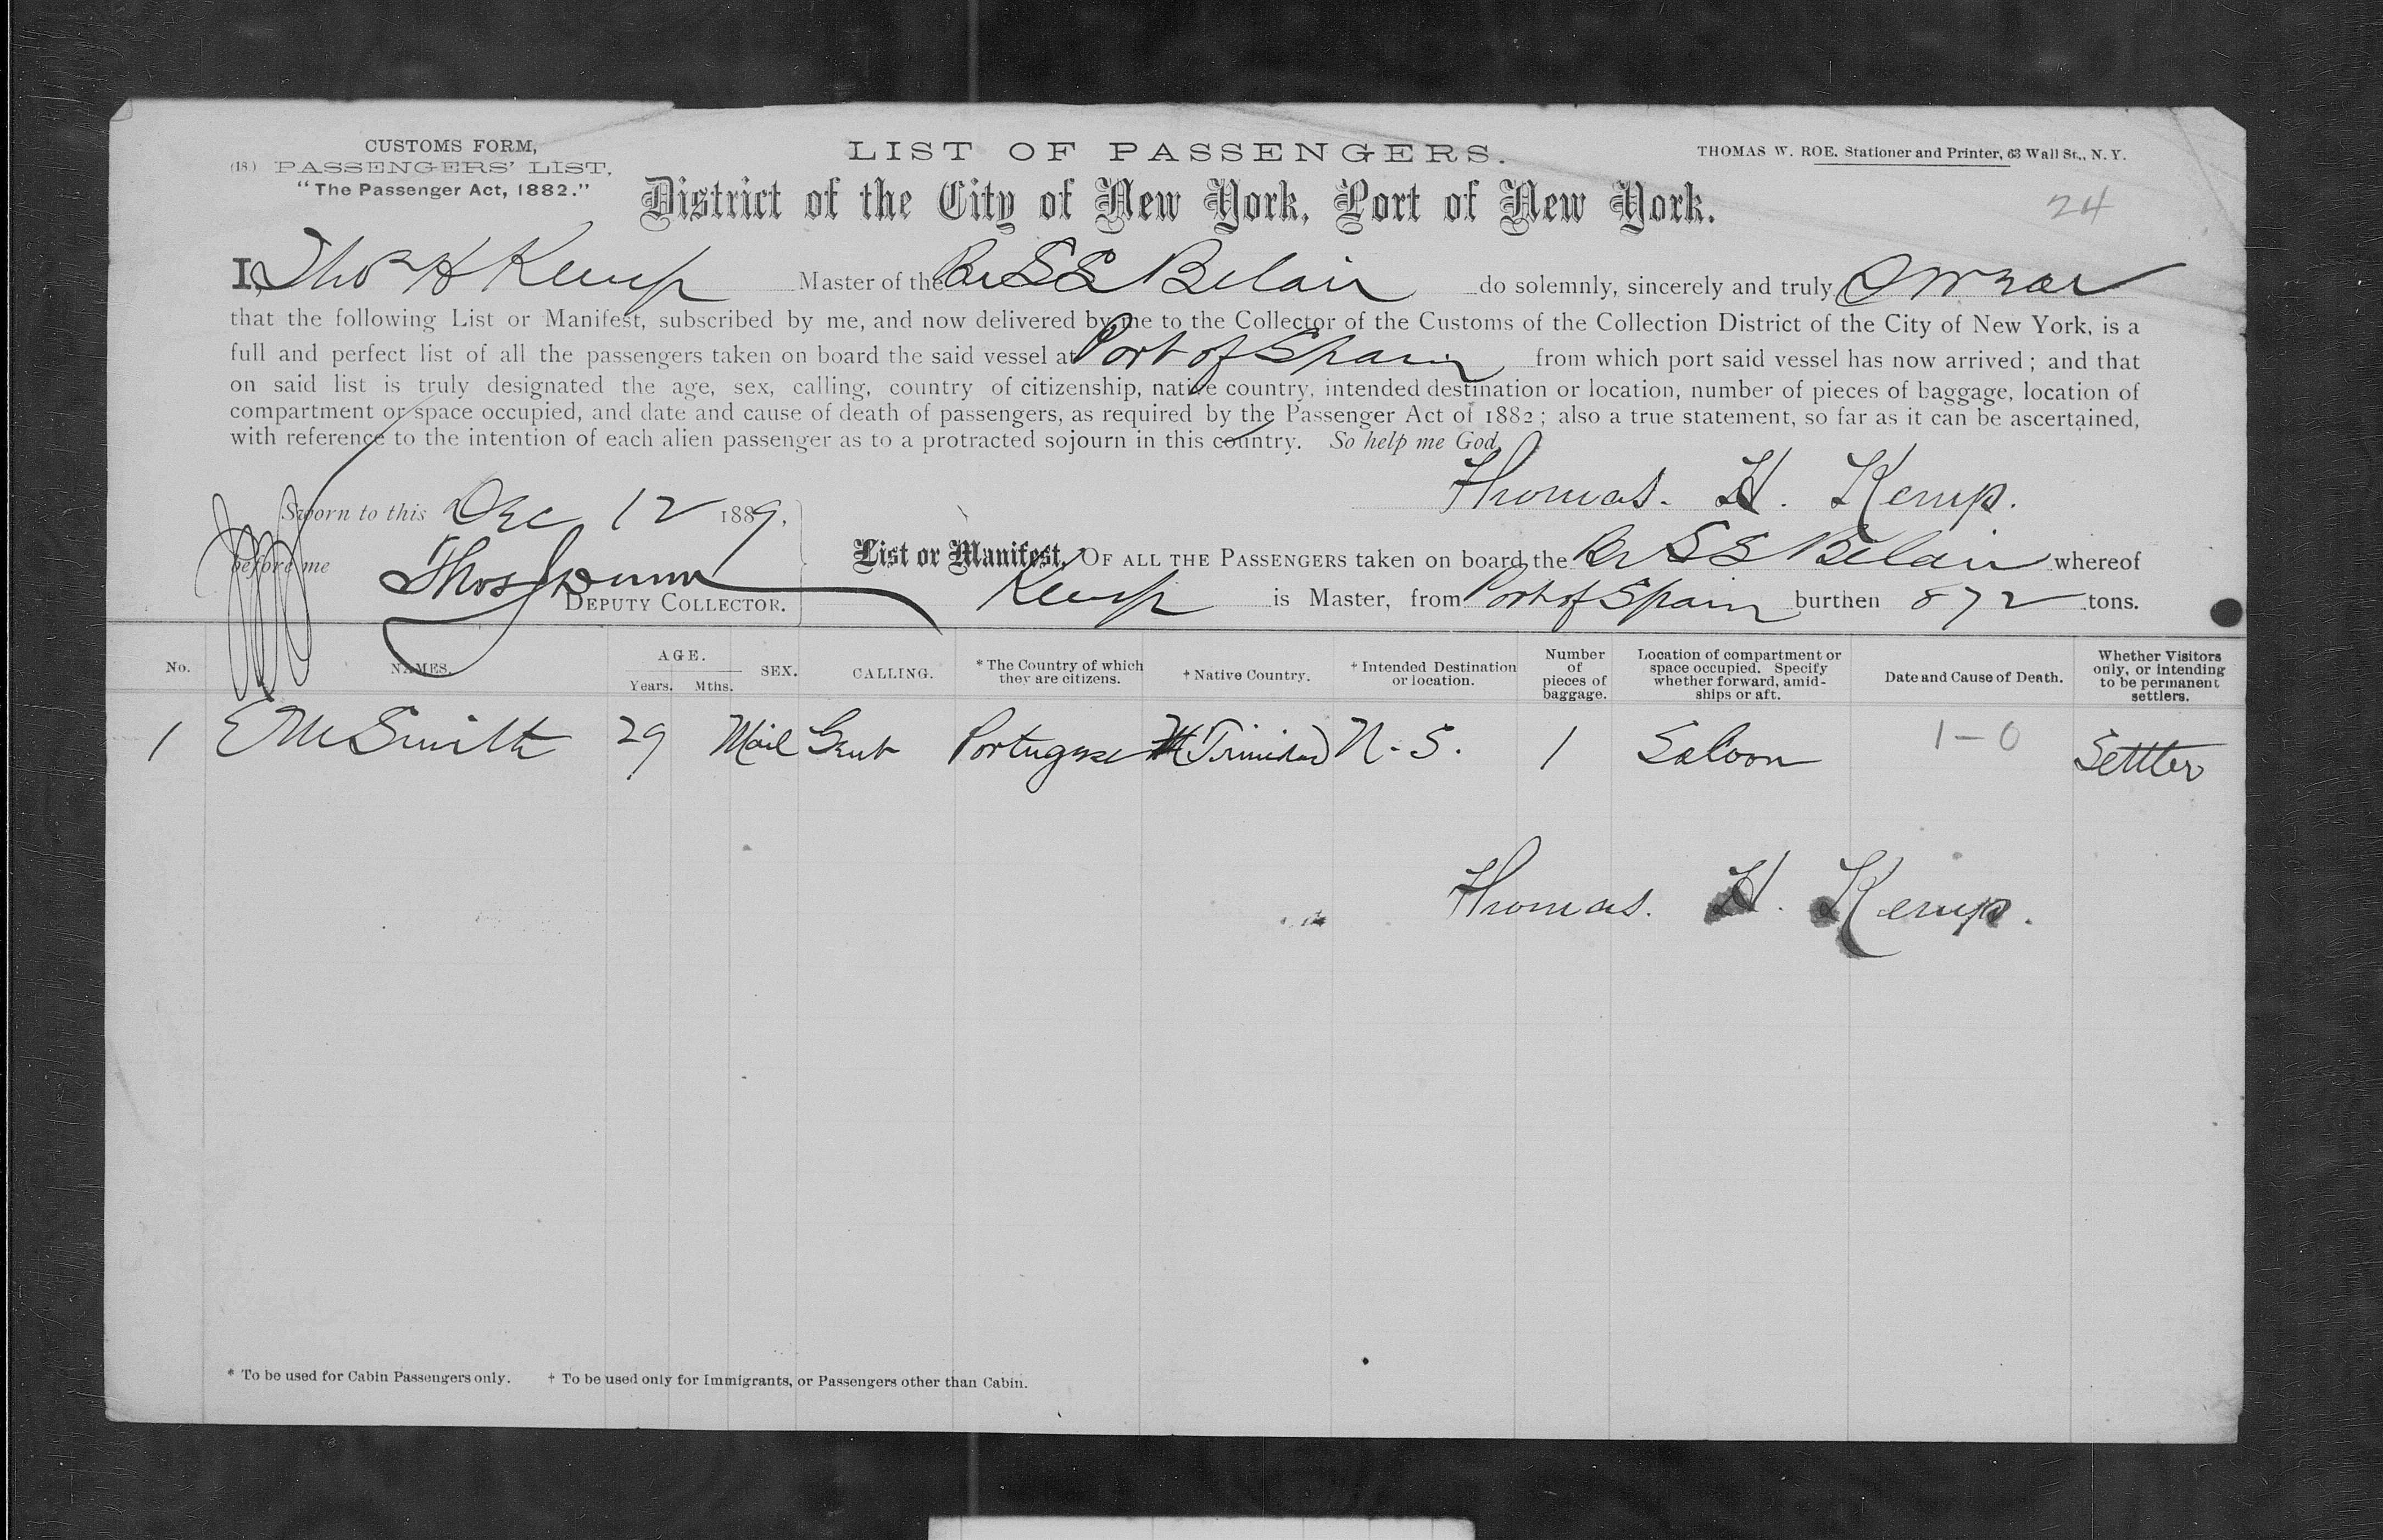 CUSTOMS FORM,
(18.) PASSENGERS' LIST,
"The Passenger Act, 1882."
LIST OF PASSENGERS.
THOMAS W. ROE, Stationer and Printer, 63 Wall St., N. Y.
District of the City of New York, Port of New York.
24
I, Thos H Kemp Master of the Br SS Belair do solemnly, sincerely and truly swear
that the following List or Manifest, subscribed by me, and now delivered by me to the Collector of the Customs of the Collection District of the City of New York, is a
full and perfect list of all the passengers taken on board the said vessel at Port of Spain from which port said vessel has now arrived; and that
on said list is truly designated the age, sex, calling, country of citizenship, native country, intended destination or location, number of pieces of baggage, location of
compartment or space occupied, and date and cause of death of passengers, as required by the Passenger Act of 1882; also a true statement, so far as it can be ascertained,
with reference to the intention of each alien passenger as to a protracted sojourn in this country. So help me God
Thomas. H. Kemp.
Sworn to this Dec 12 1889,
before me Thos Dunn
DEPUTY COLLECTOR.
List or Manifest, OF ALL THE PASSENGERS taken on board the Br SS Belair whereof
Kemp is Master, from Port of Spain burthen 872 tons.
No. NAMES. AGE. Years. Mths. SEX. CALLING. * The Country of which they are citizens. † Native Country. † Intended Destination or location. Number of pieces of baggage. Location of compartment or space occupied. Specify whether forward, amidships or aft. Date and Cause of Death. Whether Visitors only, or intending to be permanent settlers.
1 E M Smith 29 Mail Gent Portuguese Trinidad N. S. 1 Saloon 1-0 Settler
Thomas. H. Kemp.
* To be used for Cabin Passengers only. † To be used only for Immigrants, or Passengers other than Cabin.